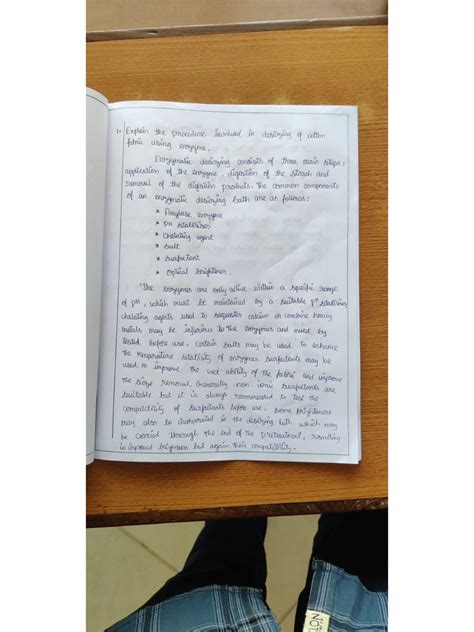 1. Explain the procedure involved in desizing of cotton
fabric using enzyme.
Enzymatic desizing consists of three main steps:
application of the enzyme, digestion of the starch and
removal of the digestion products. The common components
of an enzymatic desizing bath are as follows:
* Amylase enzyme
* pH stabilizers
* Chelating agent
* Salt
* Surfactant
* Optical brighteners.
The enzymes are only active within a specific range
of pH, which must be maintained by a suitable pH stabilizer
chelating agents used to sequester calcium or combine heavy
metals may be injurious to the enzymes and must by
tested before use. Certain salts may be used to enhance
the temperature stability of enzymes surfactants may be
used to improve the wet ability of the fabric and improve
the size removal. Generally non-ionic surfactants are
suitable but it is always recommended to test the
compatibility of surfactants before use. Some brighteners
may also be incorporated in the desizing bath which may
be carried through the end of the pretreatment, resulting
in improved brightness but again, their compatibility.